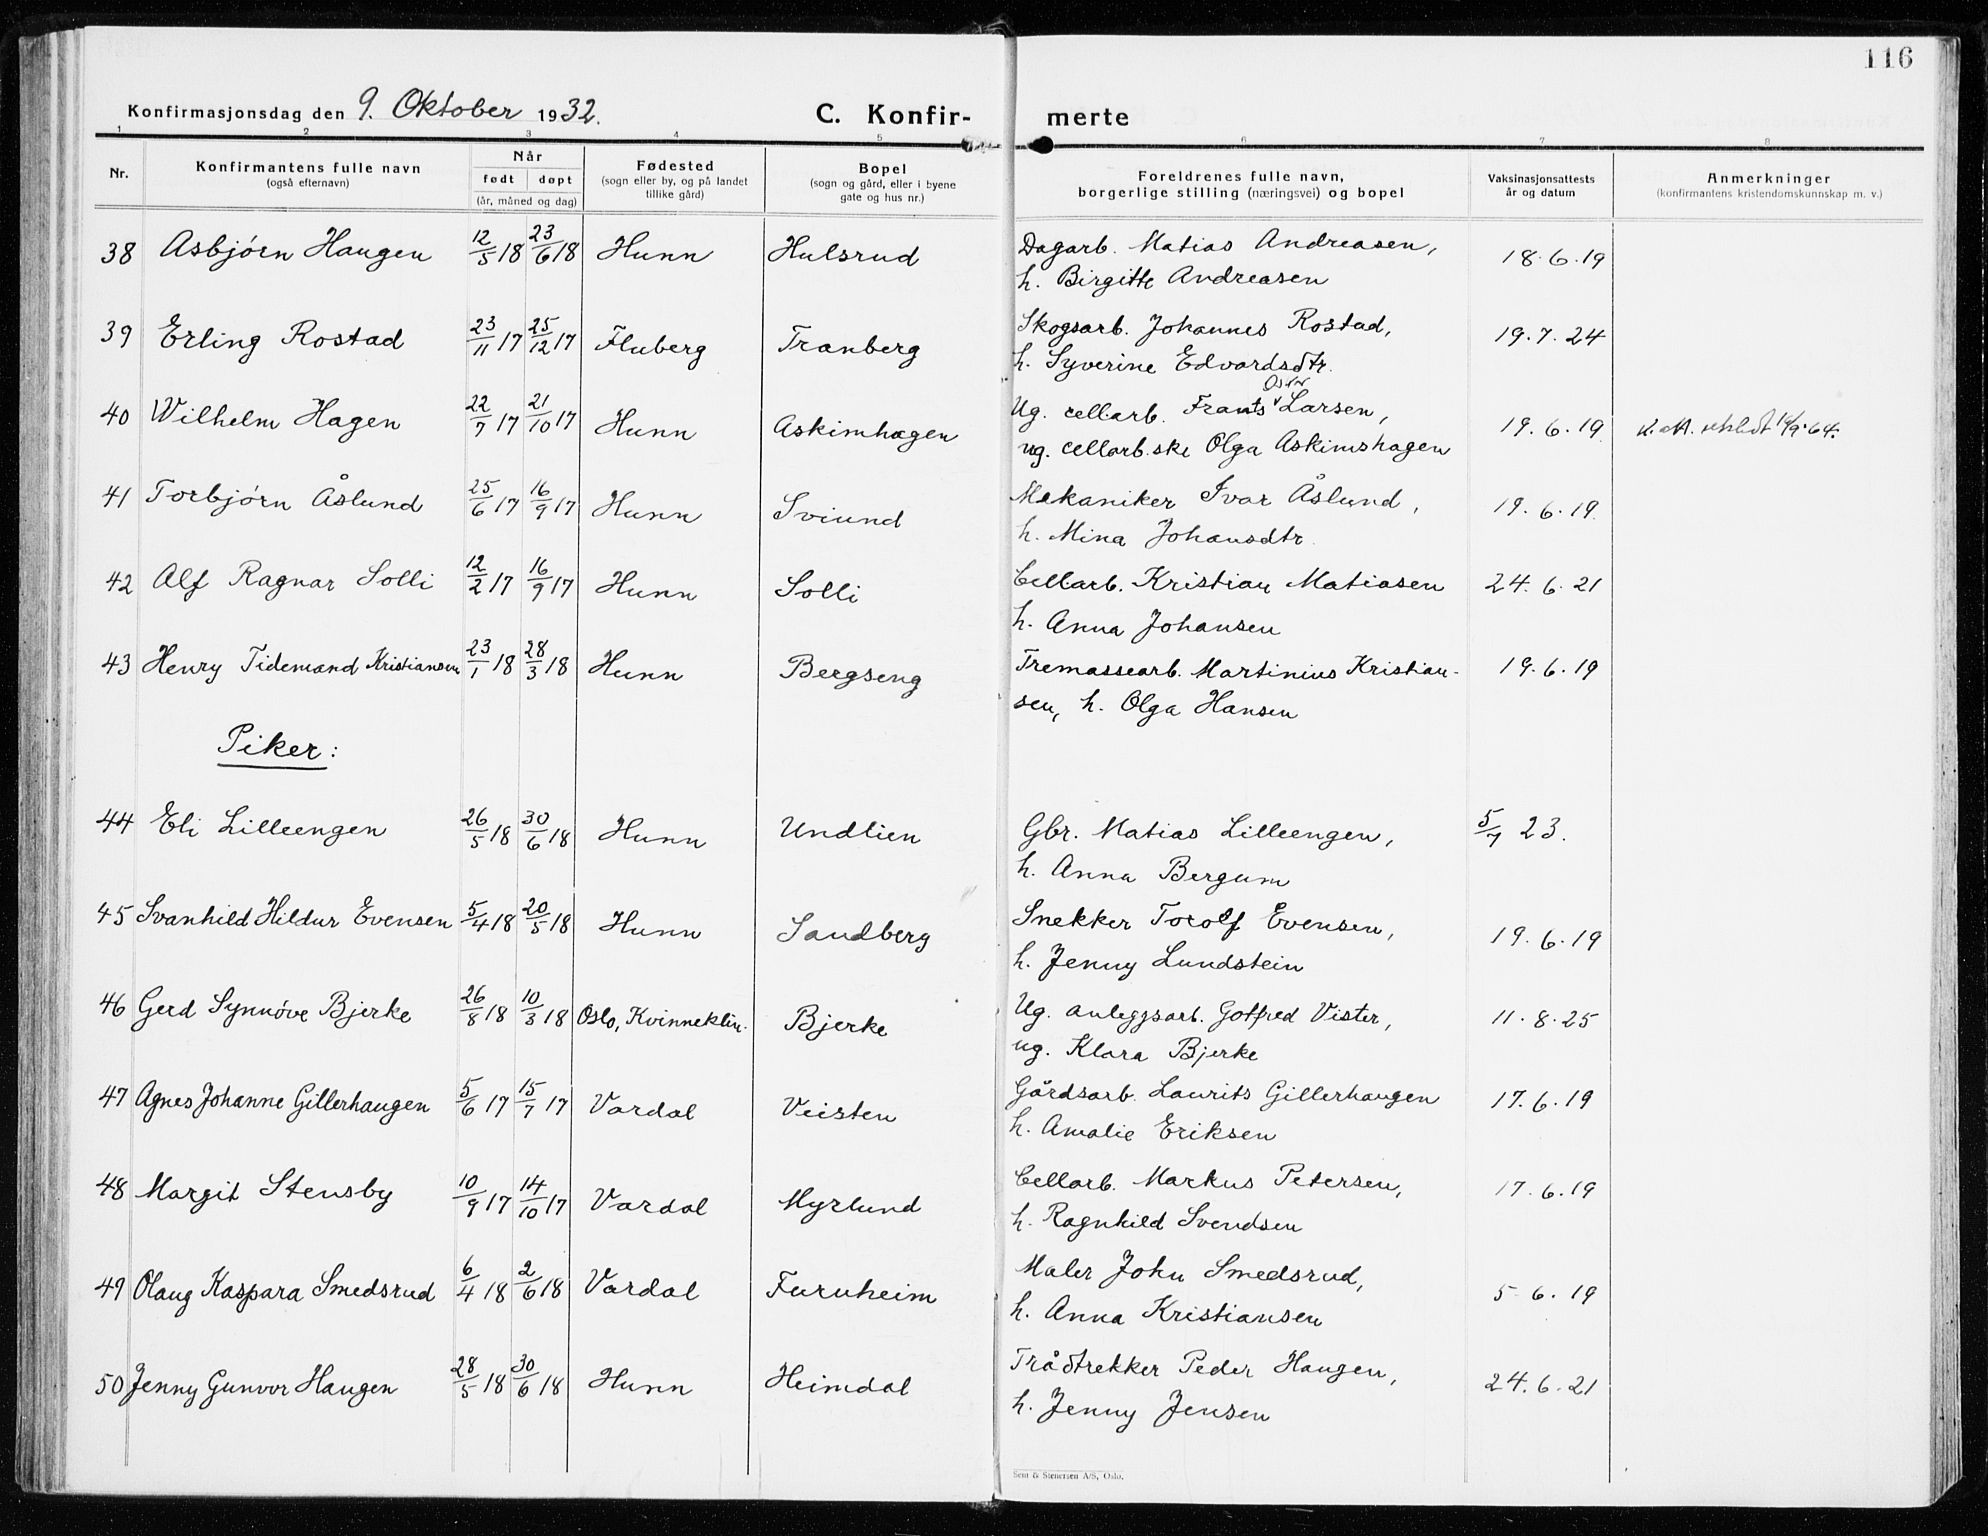 116
Konfirmasjonsdag den 9. Oktober 1932.
C. Konfir-
merte
1 2 3 4 5 6 7 8
Nr. Konfirmantens fulle navn (også efternavn) Når født døpt (år, måned og dag) Fødested (sogn eller by, og på landet tillike gård) Bopel (sogn og gård, eller i byene gate og hus nr.) Foreldrenes fulle navn, borgerlige stilling (næringsvei) og bopel Vaksinasjonsattests år og datum Anmerkninger (konfirmantens kristendomskunnskap m. v.)
38 Asbjørn Haugen 12/5 18 23/6 18 Hunn Hulsrud Dagarb. Matias Andreasen, 18.6.19
h. Birgitte Andreasen
39 Erling Rostad 23/11 17 25/12 17 Fluberg Tranberg Skogsarb. Johannes Rostad, 19.7.24
h. Syverine Edvardsdtr.
40 Wilhelm Hagen 22/7 17 21/10 17 Hunn Askimhagen Ug. cellarb. Frants Larsen, 19.6.19
ug. cellarb.ske Olga Askimshagen
41 Torbjørn Åslund 25/6 17 16/9 17 Hunn Sviund Mekaniker Ivar Åslund, 19.6.19.
h. Mina Johansdtr.
42 Alf Ragnar Solli 12/2 17 16/9 17 Hunn Solli Cellarb. Kristian Matiasen 24.6.21
h. Anna Johansen
43 Henry Tidemand Kristiansen 23/1 18 28/3 18 Hunn Bergseng Tremassearb. Martinius Kristian- 19.6.19
sen, h. Olga Hansen
Piker:
44 Eli Lilleengen 26/5 18 30/6 18 Hunn Undlien Gbr. Matias Lilleengen, 5/7 23.
h. Anna Bergum
45 Svanhild Hildur Evensen 5/4 18 20/5 18 Hunn Sandberg Snekker Torolf Evensen, 19.6.19
h. Jenny Lundstein
46 Gerd Synnöve Bjerke 26/8 18 10/3 18 Oslo, Kvinneklin. Bjerke Ug. anleggsarb. Gotfred Vister, 11.8.25
ug. Klara Bjerke
47 Agnes Johanne Gillerhaugen 5/6 17 15/7 17 Vardal Veisten Gårdsarb. Laurits Gillerhaugen 17.6.19
h. Amalie Eriksen
48 Margit Stensby 10/9 17 14/10 17 Vardal Myrlund Cellarb. Markus Petersen, 17.6.19
h. Ragnhild Svendsen
49 Olaug Kaspara Smedsrud 6/4 18 2/6 18 Vardal Furuheim Maler John Smedsrud, 5.6.19
h. Anna Kristiansen
50 Jenny Gunvor Haugen 28/5 18 30/6 18 Hunn Heimdal Trådtrekker Peder Haugen, 24.6.21
h. Jenny Jensen
Sem & Stenersen A/S, Oslo.